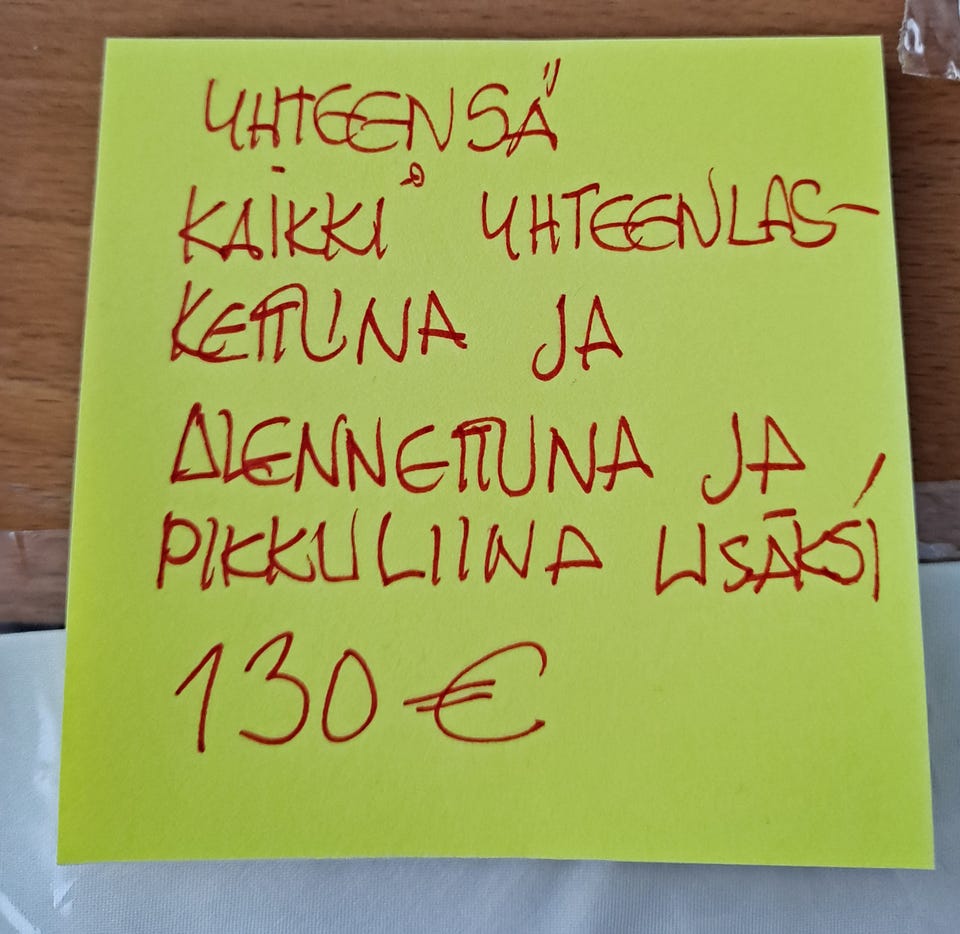 YHTEENSÄ
KAIKKI YHTEENLAS-
KETTUNA JA
ALENNETTUNA JA
PIKKULIINA LISÄKSI
130 €